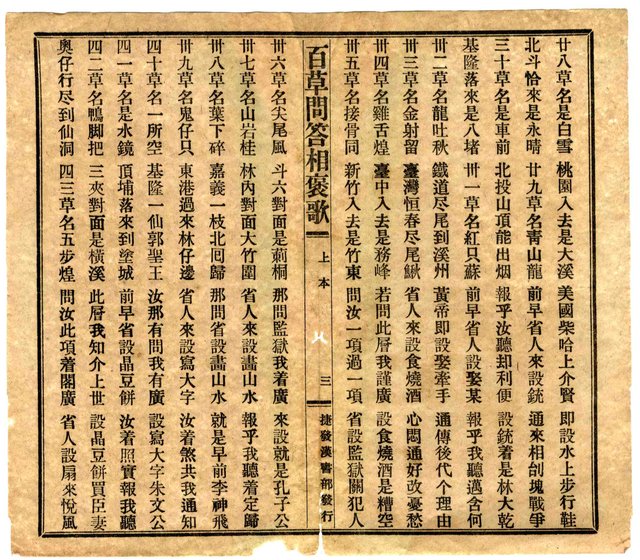 廿八草名是白雪 桃園入去是大溪 美國柴哈上介賢 即設水上步行鞋
北斗恰來是永晴 廿九草名青山龍 前早省人來設銃 通來相刣塊戰爭
三十草名是車前 北投山頂能出烟 報乎汝聽却利便 設銃着是林大乾
基隆落來是八堵 卅一草名紅只蘇 前早省人設娶某 報乎我聽邁含何
卅二草名龍吐秋 鐵道尽尾到溪州 黃帝即設娶牽手 通傳後代个理由
卅三草名金射留 臺灣恒春尽尾鰍 省人來設食燒酒 心悶通好改憂愁
卅四草名雞舌煌 臺中入去是務峰 若問此曆我謹廣 設食燒酒是糟空
卅五草名接骨同 新竹入去是竹東 問汝一項過一項 省設監獄關犯人
百草問答相褒歌 上本 三 捷發漢書部發行
卅六草名尖尾風 斗六對面是莿桐 那問監獄我着廣 來設就是孔子公
卅七草名山岩桂 林內對面大竹圍 省人來設畵山水 報乎我聽着定歸
卅八草名葉下碎 嘉義一枝北囘歸 那問省設畵山水 就是早前李神飛
卅九草名鬼仔只 東港過來林仔邊 省人來設寫大字 汝着煞共我通知
四十草名一所空 基隆一仙郭聖王 汝那有問我有廣 設寫大字朱文公
四一草名是水鏡 頂埔落來到塗城 前早省設晶豆餅 汝着照實報我聽
四二草名鴨脚把 三夾對面是橫溪 此曆我知介上世 設晶豆餅買臣妻
奧仔行尽到仙洞 四三草名五步煌 問汝此項着閣廣 省人設扇來悅風